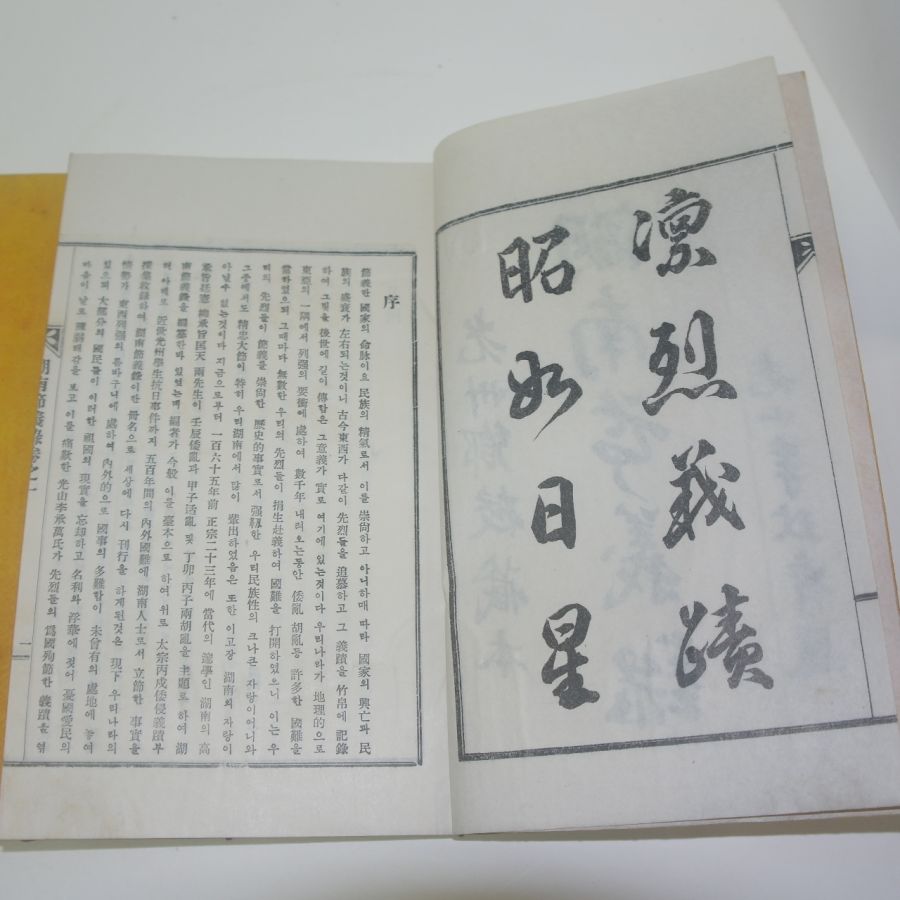 凛烈義蹟
昭如日星
序
節義란 國家의 命脉이오 民族의 精氣로서 이를 崇尙하고 아니하매 따라 國家의 興亡과 民
族의 盛衰가 左右되는것이니 古今東西가 다같이 先烈들을 追慕하고 그 義蹟을 竹帛에 記錄
하여 그빛을 後世에 길이 傳함은 그意義가 實로 여기에 있는것이다 우리나라가 地理的으로
東亞의 一隅에서 列强의 要衝에 處하여 數千年 내려오는동안 倭亂 胡亂等 許多한 國難을
當하였으되 그때마다 無數한 우리의 先烈들이 捐生赴義하여 國難을 打開하였으니 이는 우
리의 先烈들이 節義를 崇尙한 歷史的事實로서 强靱한 우리民族性의 크나큰 자랑이어니와
그중에서도 精忠大節이 特히 우리湖南에서 많이 輩出하였음은 또한 이고장 湖南의 자랑이
아닐수 없는것이다 지금으로부터 一百六十五年前 正宗二十三年에 當代의 湖南의 高
兩先生이 壬辰倭亂과 甲子适亂 및 丁卯 丙子兩胡亂을 主題로 하여 湖
南節義錄을 編纂한바 있었는데 編者가 今般 이를 臺本으로 하여 위로 太宗丙戌倭侵義蹟부
터 아래로 近世光州學生抗日事件까지 五百年間의 內外國難에 湖南人士로서 立節한 事實을
採集收錄하여 湖南節義錄이란 冊名으로 세상에 다시 刊行을 하게된것은 現下 우리나라의
情勢가 東西列强의 틈바구니에 處하여 內外的으로 國事의 多難함이 未曾有의 處地에 놓여
있으되 大部分의 國民들이 이러한 祖國의 現實을 忘却하고 名利와 浮華에 젖어 憂國愛民의
마음이 날로 稀薄해감을 보고 이를 痛歎한 光山李承萬氏가 先烈들의 爲國殉節한 義蹟을 영
湖南節義錄卷之一
一